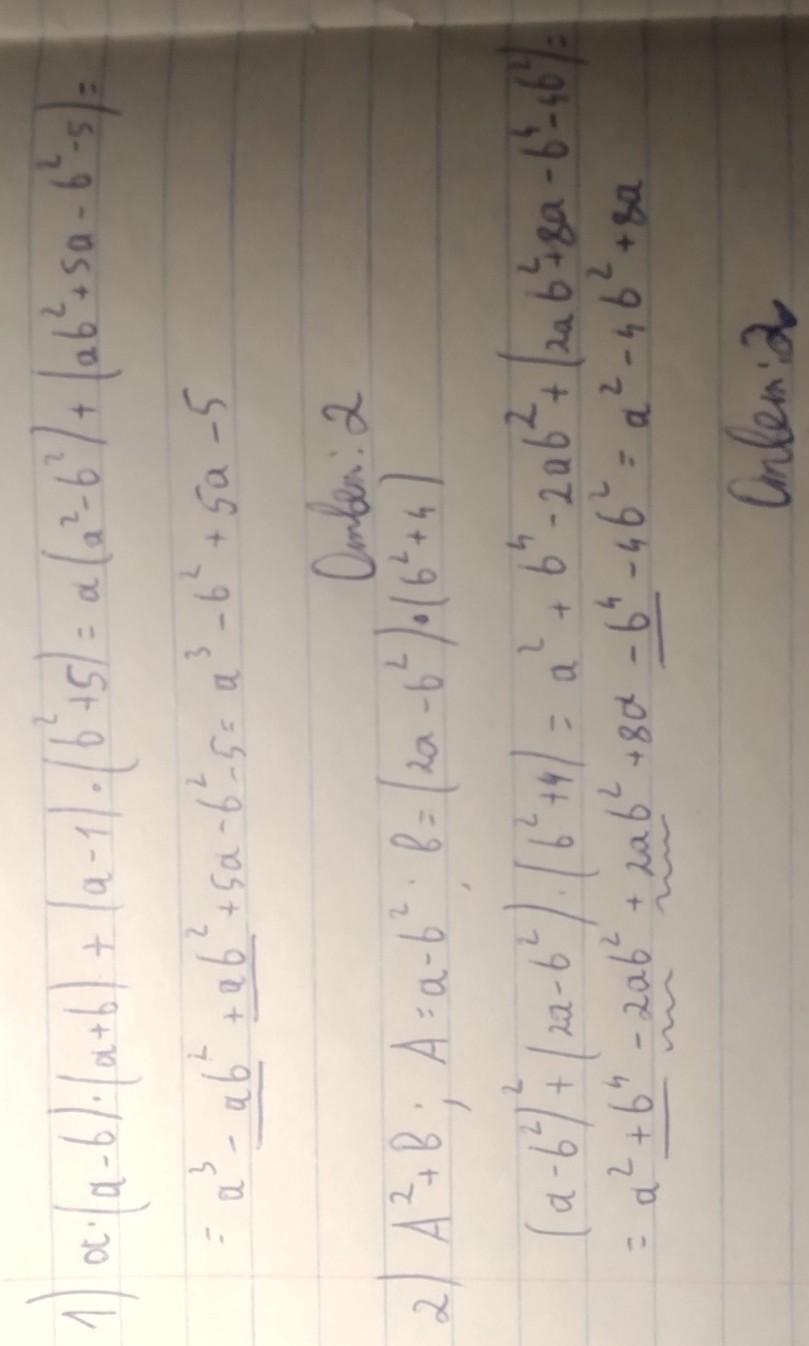 1) a·(a-b)·(a+b) + (a-1)·(b²+5) = a(a²-b²) + (ab²+5a-b²-5) =
= a³ - ab² + ab² + 5a - b² - 5 = a³ - b² + 5a - 5
Ответ: 2
2) A²+B; A = a-b²; B = (2a-b²)·(b²+4)
(a-b²)² + (2a-b²)·(b²+4) = a² + b⁴ - 2ab² + (2ab²+8a-b⁴-4b²) =
= a² + b⁴ - 2ab² + 2ab² + 8a - b⁴ - 4b² = a² - 4b² + 8a
Ответ: 2